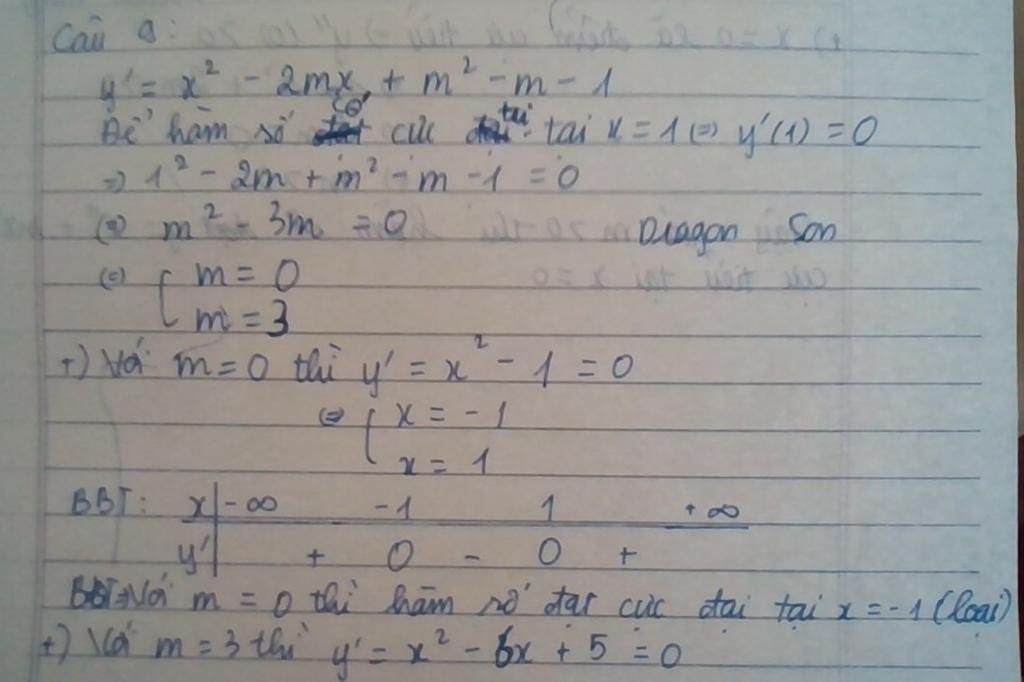 Câu 9:
y' = x² - 2mx + m² - m - 1
Để hàm số có cực trị tại x = 1 (=) y'(1) = 0
=) 1² - 2m + m² - m - 1 = 0
(=) m² - 3m = 0 Dragon Son
(=) [ m = 0
m = 3
+) Với m = 0 thì y' = x² - 1 = 0
(=) [ x = -1
x = 1
BBT: x | -∞ -1 1 +∞
y' | + 0 - 0 +
BBT=) Với m = 0 thì hàm số đạt cực đại tại x = -1 (loại)
+) Với m = 3 thì y' = x² - 6x + 5 = 0